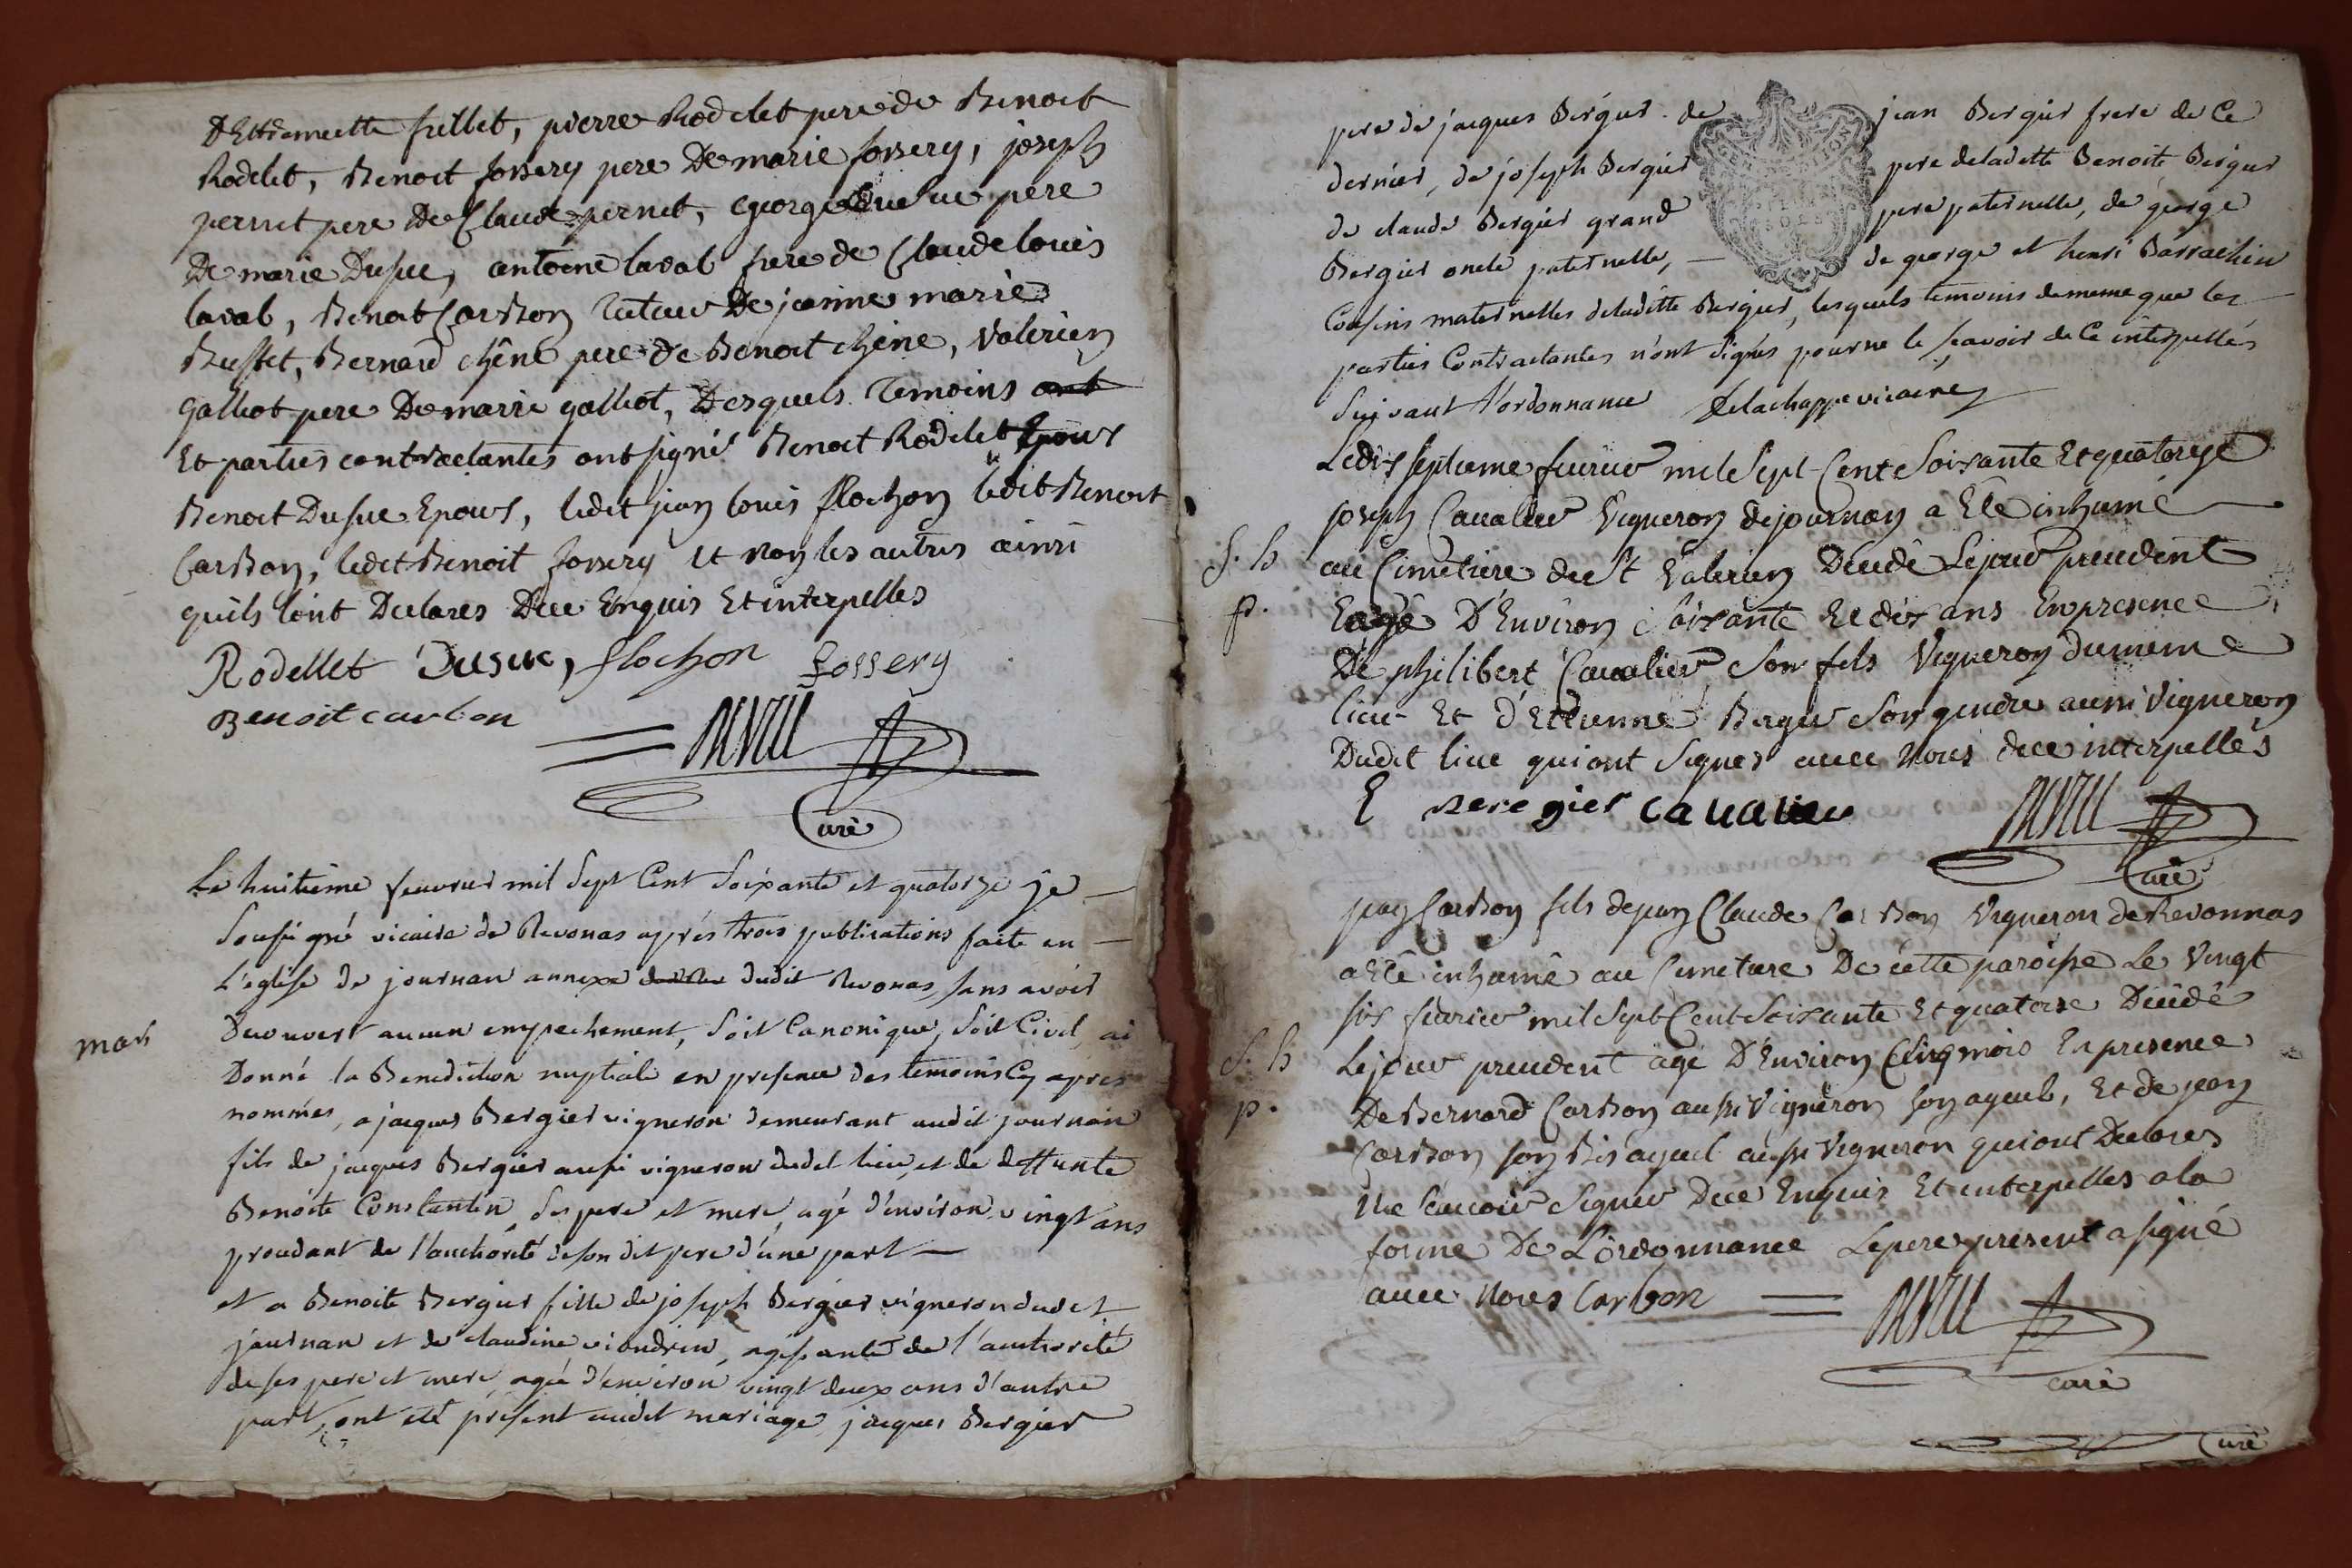 pierre Rodelet pere de Benoit
Rodelet, Benoit fossery pere De marie fossery, joseph
pernet pere De Claude pernet, george Dusuc pere
De marie Dusuc, antoine laval frere de Claude louis
laval, Benoit Carbon De jeanne marie
Buffet, Bernard chêne pere de Benoit chêne, Valerien
galliot pere De marie galliot, Desquels Temoins ont
Et parties contractantes ont signé Benoit Rodelet Epoux
Benoit Dusuc Epoux, ledit jean louis flochon ledit Benoit
Carbon, ledit Benoit fossery et non les autres ainsi
quils lont Declares Dece Enquis Et interpelles
Rodellet Dusuc, flochon fossery
Benoit carbon
Curé
Le huitieme feuvrier mil Sept Cent Soixante et quatorze je
Sousigné vicaire de Revonas après trois publications faite en
L'eglise de journan annexe dudit Revonas, sans avoir
Decouvert aucun empechement, Soit Canonique, Soit Civil, ai
mar
Donné la Benediction nuptiale en presence des temoins Cy apres
nommés, a jacques Bergier vigneron demeurant audit journan
fils de jacques Bergier aussi vigneron dudit lieu, et de deffunte
Benoite Constantin, Ses pere et mere, agé d'environ vingt ans
proudant de l'authorité de son dit pere d'une part
et a Benoite Bergier fille de joseph Bergier vigneron dudit
journan et de claudine viondrin, agissante de l'authorité
de ses pere et mere agée d'environ vingt deux ans d'autre
part, ont eté present audit mariage jacques Bergier
pere de jacques Bergier de jean Bergier frere de Ce
dernier, de joseph Bergier pere deladitte Benoite Bergier
de claude Bergier grand pere paternelle, de george
Bergier oncle paternelle, de george et henri Barrachin
Cousins maternelles deladitte Bergier, lesquels temoins de meme que les
parties Contractantes n'ont signés pour ne le sçavoir de Ce interpellés
Suivant l'ordonnance Delachappe vicaire
Ledix septieme feurier mil Sept Cent Soixante Et quatorze
joseph Caualier Vigneron de journan a Eté inhumé
S. h
au Cimetiere de St Valerien Decedé Lejour precedent
p.
Eagé D'Environ Soixante Et dix ans En presence
De philibert Caualier Son fils Vigneron du meme
lieu Et d'Etienne Bergier Son gendre aussi Vigneron
Dudit lieu qui ont Signes auec Nous dece interpellés
E beregier cavalier
Curé
jean Carbon fils de jean Claude Carbon Vigneron de Revonnas
a Eté inhumé au Cimetiere De cette paroisse Le Vingt
six feurier mil Sept Cent Soixante Et quatorze Decedé
S. h
Lejour precedent agé D'Environ Cinq mois En presence
p.
De Bernard Carbon aussi Vigneron son ayeul, Et de jean
Carbon son Bis ayeul aussi Vigneron qui ont Declares
Ne Scauoir Signer Dece Enquis Et interpelles a la
forme De L'ordonnance Le pere present a signé
auec Nous Carbon
curé
Curé